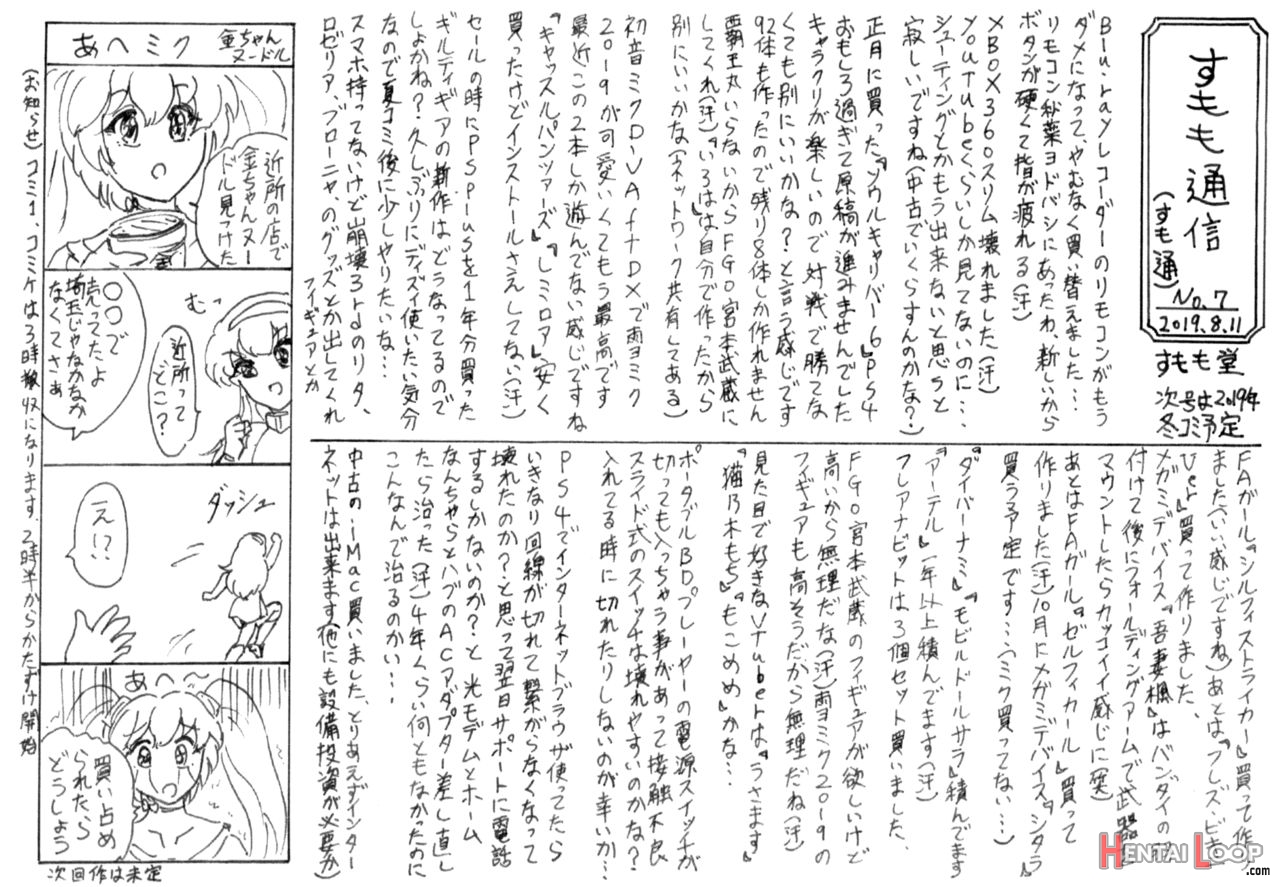 すもも通信
(すも通)
No.7
2019.8.11
すもも堂
次号は2019年
冬コミ予定
Blu-rayレコーダーのリモコンがもう
ダメになって、やむなく買い替えました…
リモコン秋葉ヨドバシにあったわ、新しいから
ボタンが硬くて指が疲れる(汗)
XBOX360スリム壊れました(汗)
YouTubeくらいしか見てないのに…
シューティングとかもう出来ないと思うと
寂しいですね(中古でいくらすんのかな?)
正月に買った『ソウルキャリバー6』PS4
おもしろ過ぎて原稿が進みませんでした
キャラクリが楽しいので対戦で勝てな
くても別にいいかな?と言う感じです
92体も作ったので残り8体しか作れません
覇王丸いらないからFGO宮本武蔵に
してくれ(汗)『いろは』は自分で作ったから
別にいいかな(ネットワーク共有してある)
初音ミクDIVAftDXで雨ヨミク
2019が可愛いくてもう最高です
最近この2本しか遊んでない感じですね
『キャッスルパンツァーズ』『レミロア』安く
買ったけどインストールさえしてない(汗)
セールの時にPSPlusを1年分買った
ギルティギアの新作はどうなってるので
しょかね?久しぶりにディズィ使いたい気分
なので夏コミ後に少しやりたいな…
スマホ持ってないけど崩壊3rdのリタ、
ロゼリア、ブローニャ、のグッズとか出してくれ
フィギュアとか
FAガール『シルフィストライカー』買って作り
ました(いい感じですね)あとは『フレズヴェルク
Ver』買って作りました、
メガミデバイス『吾妻楓』はバンダイの
付けて後にフォールディングアームで武器
マウントしたらカッコイイ感じに(笑)
あとはFAガール『ゼルフィカール』買って
作りました(汗)10月にメガミデバイス『シタラ』
買う予定です…(ミク買ってない…)
『ダイバーナミ』『モビルドールサラ』積んでます
『アーテル』一年以上積んでます(汗)
フレアナビットは3個セット買いました、
FGO宮本武蔵のフィギュアが欲しいけど
高いから無理だな(汗)雨ヨミク2019の
フィギュアも高そうだから無理だね(汗)
見た目で好きなVTuberは『うさます』
『猫乃木もち』『もこめめ』かな…
ポータブルBDプレーヤーの電源スイッチが
切っても入っちゃう事があって接触不良
スライド式のスイッチは壊れやすいのかな?
入れてる時に切れたりしないのが幸いか…
PS4でインターネットブラウザ使ってたら
いきなり回線が切れて繋がらなくなって
壊れたのか?と思って翌日サポートに電話
するしかないのか?と光モデムとホーム
なんちゃらとハブのACアダプター差し直し
たら治った(汗)4年くらい何ともなかったのに
こんなんで治るのかい…
中古のiMac買いました、とりあえずインター
ネットは出来ます(他にも設備投資が必要か)
あへミク
金ちゃん
ヌードル
近所の店で
金ちゃんヌー
ドル見つけた
むっ
近所って
どこ?
○○で
売ってたよ
埼玉じゃなかなか
なくてさぁ
ダッシュ
え!?
あへ〜
買い占め
られたら
どうしよう
次回作は未定
(お知らせ)コミ1、コミケは3時撤収になります、2時半からかたずけ開始
HENTAI LOOP.com